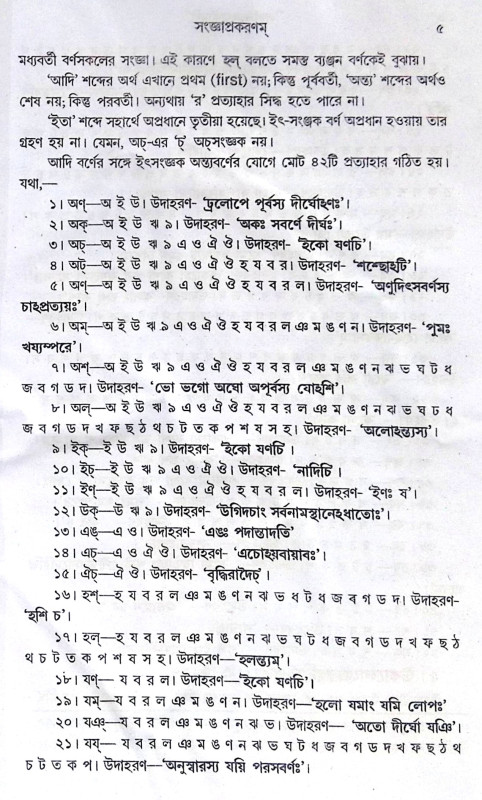 সংজ্ঞাপ্রকরণম্ ৫
মধ্যবর্তী বর্ণসকলের সংজ্ঞা। এই কারণে হল্ বলতে সমস্ত ব্যঞ্জন বর্ণকেই বুঝায়।
‘আদি’ শব্দের অর্থ এখানে প্রথম (first) নয়; কিন্তু পূর্ববর্তী, ‘অন্ত্য’ শব্দের অর্থও
শেষ নয়; কিন্তু পরবর্তী। অন্যথায় ‘র’ প্রত্যাহার সিদ্ধ হতে পারে না।
‘ইতা’ শব্দে সহার্থে অপ্রধানে তৃতীয়া হয়েছে। ইৎ-সংজ্ঞক বর্ণ অপ্রধান হওয়ায় তার
গ্রহণ হয় না। যেমন, অচ্-এর ‘চ্’ অচ্‌সংজ্ঞক নয়।
আদি বর্ণের সঙ্গে ইৎসংজ্ঞক অন্ত্যবর্ণের যোগে মোট ৪২টি প্রত্যাহার গঠিত হয়।
যথা,—
১। অণ্—অ ই উ। উদাহরণ- ‘ঢ্রলোপে পূর্বস্য দীর্ঘোঽণঃ’।
২। অক্—অ ই উ ঋ ৯। উদাহরণ- ‘অকঃ সবর্ণে দীর্ঘঃ’।
৩। অচ্—অ ই উ ঋ ৯ এ ও ঐ ঔ। উদাহরণ- ‘ইকো যণচি’।
৪। অট্—অ ই উ ঋ ৯ এ ও ঐ ঔ হ য ব র। উদাহরণ- ‘শশ্ছোঽটি’।
৫। অণ্—অ ই উ ঋ ৯ এ ও ঐ ঔ হ য ব র ল। উদাহরণ- ‘অণুদিৎসবর্ণস্য
চাঽপ্রত্যয়ঃ’।
৬। অম্—অ ই উ ঋ ৯ এ ও ঐ ঔ হ য ব র ল ঞ ম ঙ ণ ন। উদাহরণ- ‘পুমঃ
খয্যম্পরে’।
৭। অশ্—অ ই উ ঋ ৯ এ ও ঐ ঔ হ য ব র ল ঞ ম ঙ ণ ন ঝ ভ ঘ ট ধ
জ ব গ ড দ। উদাহরণ- ‘ভো ভগো অঘো অপূর্বস্য যোঽশি’।
৮। অল্—অ ই উ ঋ ৯ এ ও ঐ ঔ হ য ব র ল ঞ ম ঙ ণ ন ঝ ভ ঘ ট ধ
জ ব গ ড দ খ ফ ছ ঠ থ চ ট ত ক প শ ষ স হ। উদাহরণ- ‘অলোঽন্ত্যস্য’।
৯। ইক্—ই উ ঋ ৯। উদাহরণ- ‘ইকো যণচি’।
১০। ইচ্—ই উ ঋ ৯ এ ও ঐ ঔ। উদাহরণ- ‘নাদিচি’।
১১। ইণ্—ই উ ঋ ৯ এ ও ঐ ঔ হ য ব র ল। উদাহরণ- ‘ইণঃ ষ’।
১২। উক্—উ ঋ ৯। উদাহরণ- ‘উগিদচাং সর্বনামস্থানেঽধাতোঃ’।
১৩। এঙ্—এ ও। উদাহরণ- ‘এঙঃ পদান্তাদতি’
১৪। এচ্—এ ও ঐ ঔ। উদাহরণ- ‘এচোঽয়বায়াবঃ’।
১৫। ঐচ্—ঐ ঔ। উদাহরণ- ‘বৃদ্ধিরাদৈচ্’।
১৬। হশ্—হ য ব র ল ঞ ম ঙ ণ ন ঝ ভ ধ ট ধ জ ব গ ড দ। উদাহরণ-
‘হশি চ’।
১৭। হল্—হ য ব র ল ঞ ম ঙ ণ ন ঝ ভ ঘ ট ধ জ ব গ ড দ খ ফ ছ্ ঠ
থ চ ট ত ক প শ ষ স হ। উদাহরণ—‘হলন্ত্যম্’।
১৮। যণ্—য ব র ল। উদাহরণ—‘ইকো যণচি’।
১৯। যম্—য ব র ল ঞ ম ঙ ণ ন। উদাহরণ—‘হলো যমাং যমি লোপঃ’
২০। যঞ্—য ব র ল ঞ ম ঙ ণ ন ঝ ভ। উদাহরণ— ‘অতো দীর্ঘো যঞি’।
২১। যয্— য ব র ল ঞ ম ঙ ণ ন ঝ ভ ঘ ট ধ জ ব গ ড দ খ ফ ছ ঠ থ
চ ট ত ক প। উদাহরণ—‘অনুস্বারস্য যয়ি পরসবর্ণঃ’।